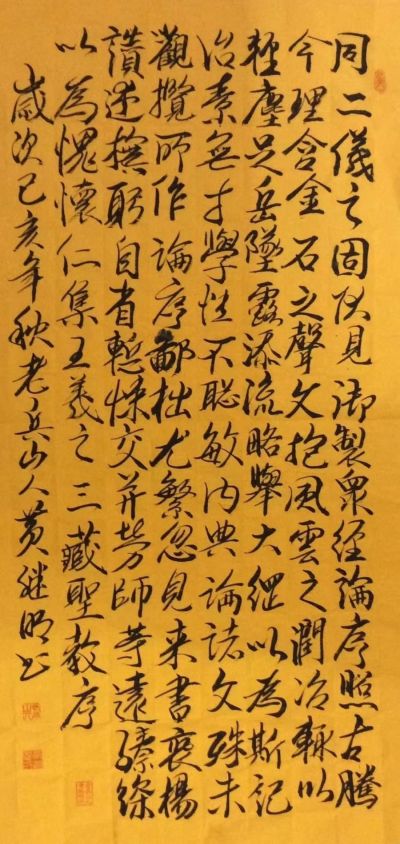 同二儀之固伏見御製眾經論序照古騰
今理含金石之聲文抱風雲之潤治輒以
輕塵足岳墜露添流略舉大綱以為斯記
治素無才學性不聰敏內典論誌文殊未
觀攬所作論序鄙拙尤繁忽見来書褒楊
讚述撫躬自省慙悚交并勞師等遠臻深
以為愧懷仁集王羲之三藏聖教序
歲次己亥年秋老兵山人黃継明书